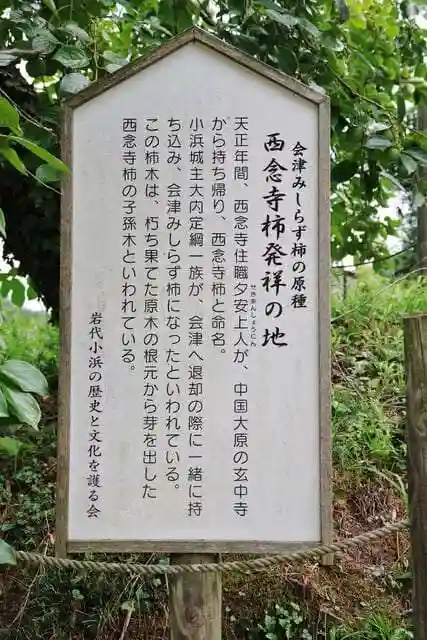 会津みしらず柿の原種
西念寺柿発祥の地
天正年間、西念寺住職夕安上人が、中国大原の玄中寺
せきあんしょうにん
から持ち帰り、西念寺柿と命名。
小浜城主大内定綱一族が、会津へ退却の際に一緒に持
ち込み、会津みしらず柿になったといわれている。
この柿木は、朽ち果てた原木の根元から芽を出した
西念寺柿の子孫木といわれている。
岩代小浜の歴史と文化を護る会